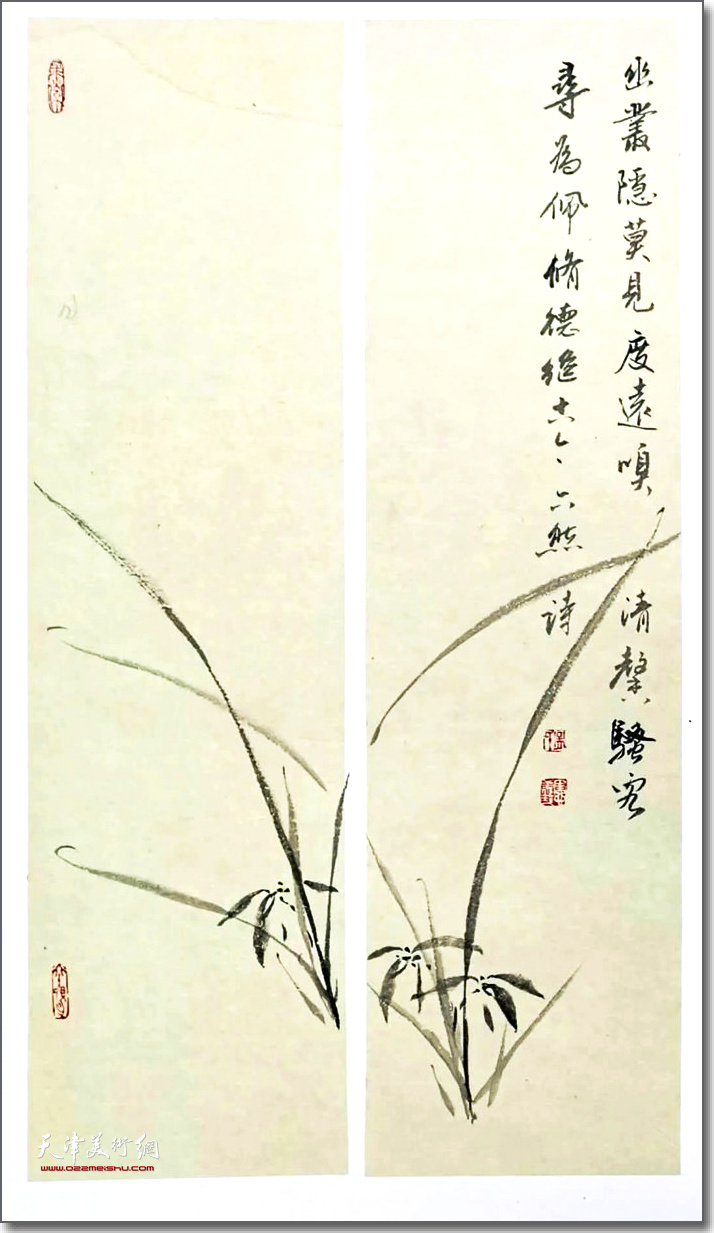 幽叢隱莫見度遠嗅清馨騷客
尋為佩脩德繼古今 六然詩
天津美術網
www.022meishu.com